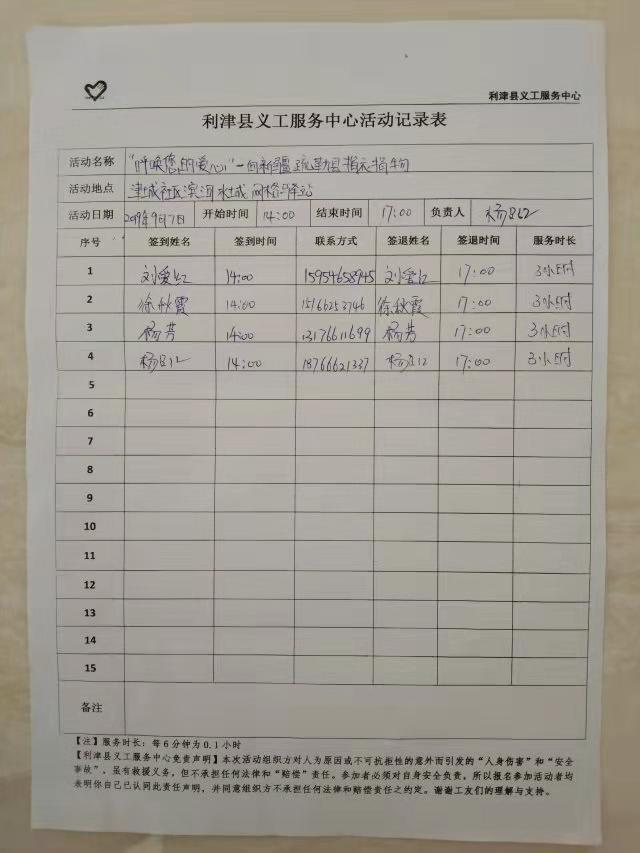 利津县义工服务中心
利津县义工服务中心活动记录表
活动名称 "呼唤您的爱心"—向新疆疏勒县捐衣捐物
活动地点 津城社区滨河水城网格驿站
活动日期 2019年9月7日 开始时间 14:00 结束时间 17:00 负责人 杨
序号 签到姓名 签到时间 联系方式 签退姓名 签退时间 服务时长
1 刘爱红 14:00 15954658945 刘爱红 17:00 3小时
2 徐秋霞 14:00 15166253746 徐秋霞 17:00 3小时
3 杨芳 14:00 13176611699 杨芳 17:00 3小时
4 杨 14:00 18766621337 杨 17:00 3小时
5
6
7
8
9
10
11
12
13
14
15
备注
【注】服务时长：每6分钟为0.1小时
【利津县义工服务中心免责声明】本次活动组织方对人为原因或不可抗拒性的意外而引发的“人身伤害”和“安全
事故”，虽有救援义务，但不承担任何法律和“赔偿”责任。参加者必须对自身安全负责。所以报名参加活动者均
表明你自己已认同此责任声明，并同意组织方不承担任何法律和赔偿责任之约定。谢谢工友们的理解与支持。